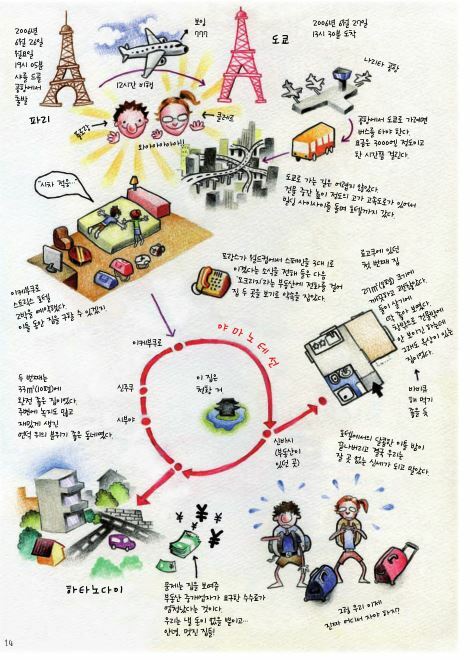 2006년
6월 26일
월요일
19시 05분
샤를 드골
공항에서
출발
파리
보잉
777
12시간 비행
플로랑
클레르
와아아아아아!!
도쿄
2006년 6월 27일
13시 30분 도착
나리타 공항
공항에서 도쿄로 가려면
버스를 타야 한다.
요금은 3000엔 정도이고
한 시간쯤 걸린다.
도쿄로 가는 길은 어렵지 않았다.
건물 중간 높이 정도의 고가 고속도로가 있어서
빌딩 사이사이를 돌며 호텔까지 갔다.
"시차 적응..."
이케부쿠로
스트란스 호텔
2박을 예약했다.
이틀 동안 집을 구할 수 있겠지.
프랑스가 월드컵에서 스페인을 3대 1로
이겼다는 소식을 전해 들은 다음
'오크리지'라는 부동산에 전화를 걸어
집 두 곳을 보기로 약속을 잡았다.
료고쿠에 있던
첫 번째 집
27㎡(8평) 크기에
깨끗하고 괜찮았다.
둘이 살기에
딱 좋아 보였다.
안 보이긴 하는데
그래도 옥상이 있는
집이었다.
바비큐
해 먹기
좋을 듯
이케부쿠로
야마노테선
신주쿠
시부야
이 집은
천황 거
신바시
(부동산이
있던 곳)
두 번째는
33㎡(10평)에
완전 좋은 집이었다.
주변에 녹지도 많고
재밌게 생긴
언덕 위의 분위기 좋은 동네였다.
호텔에서의 달콤한 이틀 밤이
끝나버리고 결국 우리는
잘 곳 없는 신세가 되고 말았다.
하타노다이
문제는 집을 보여준
부동산 중개업자가 요구한 수수료가
엄청났다는 것이다.
우리는 낼 돈이 없을 뿐이고...
안녕, 멋진 집들!
그럼 우리 이제
진짜 어디서 자야 하지?
14